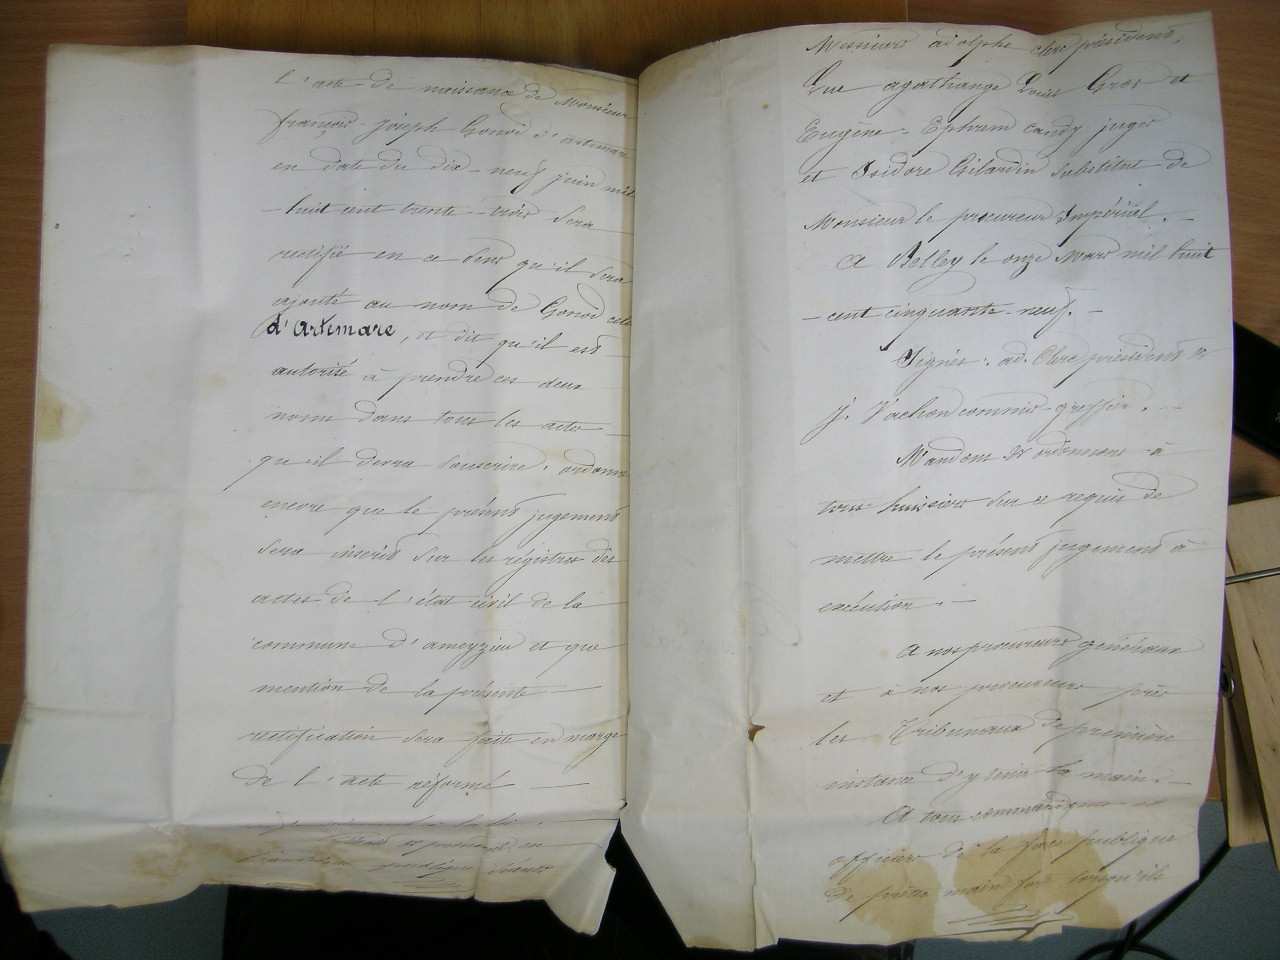 l'acte de naissance de Monsieur
françois-Joseph Gonod d'artemare
en date du dix-neuf juin mil
-huit cent trente-trois sera
rectifié en ce sens qu'il sera
ajouté au nom de Gonod celui
d'Artemare, et dit qu'il est
autorisé à prendre ces deux
noms dans tous les actes
qu'il devra souscrire; ordonne
encore que le présent jugement
sera inscrit sur les régistres des
actes de l'état civil de la
commune d'ameyzieu et que
mention de la présente
rectification sera faite en marge
de l'acte réformé
prononcé en
publique
Messieurs adolphe Clerc président,
Luc agathange Louis Gros et
Eugène-Ephrem Candy juges
et Isidore Gilardin substitut de
Monsieur le procureur Impérial. -
A Belley le onze Mars mil huit
-cent cinquante-neuf. -
Signés: ad. Clerc président &
J. Vachon commis-greffier. -
Mandons & ordonnons à
tous huissiers sur ce requis de
mettre le présent jugement à
exécution. -
A nos procureurs généraux
et à nos procureurs près
les Tribunaux de première
instance d'y tenir la main. -
A tous commandants et
officiers de la force publique
de prêter main forte lorsqu'ils